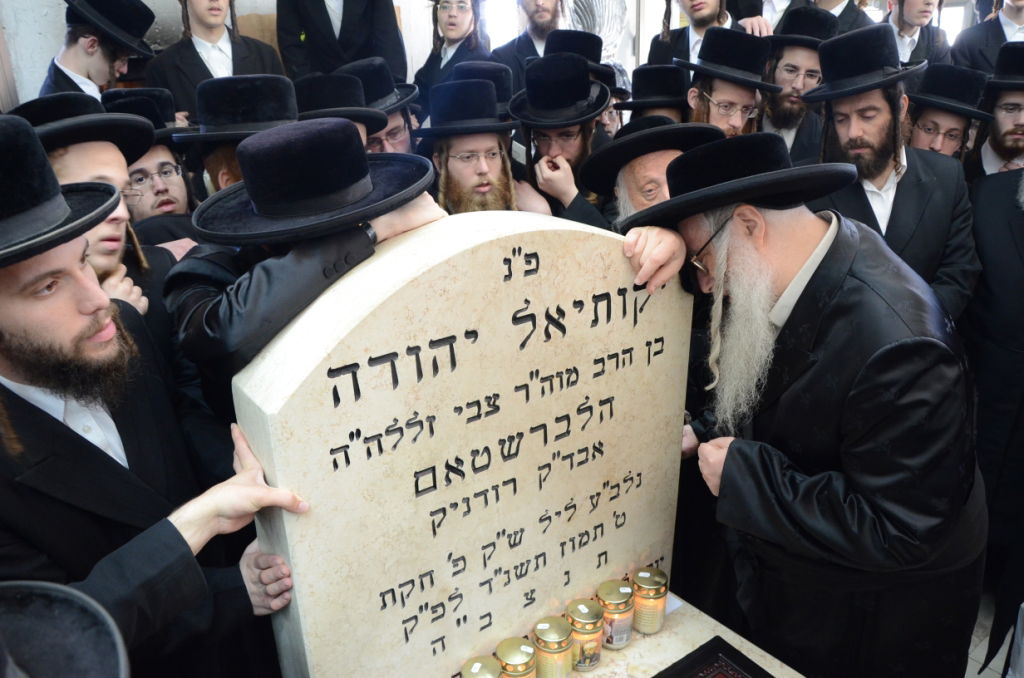 פ"נ
קותיאל יהודה
בן הרב מוה"ר צבי זללה"ה
הלברשטאם
אבד"ק רודניק
נלב"ע ליל ש"ק פ' חקת
ט' תמוז תשנ"ד לפ"ק
ת נ צ ב " ה